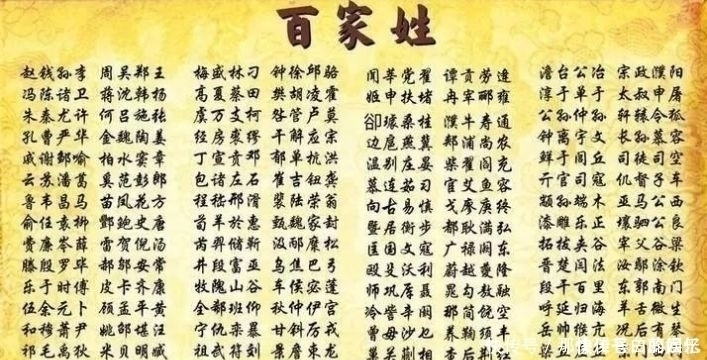 百家姓
赵钱孙李 周吴郑王
冯陈诸卫 蒋沈韩杨
朱秦尤许 何吕施张
孔曹严华 金魏陶姜
戚谢邹喻 柏水窦章
云苏潘葛 奚范彭郎
鲁韦昌马 苗凤花方
俞任袁柳 酆鲍史唐
费廉岑薛 雷贺倪汤
滕殷罗毕 郝邬安常
乐于时傅 皮卞齐康
伍余元卜 顾孟平黄
和穆萧尹 姚邵堪汪
祁毛禹狄 米贝明臧
梅盛林刁 钟徐邱骆
高夏蔡田 樊胡凌霍
虞万支柯 昝管卢莫
经房裘缪 干解应宗
丁宣贲邓 郁单杭洪
包诸左石 崔吉钮龚
程嵇邢滑 裴陆荣翁
荀羊於惠 甄魏家封
芮羿储靳 汲邴糜松
井段富巫 乌焦巴弓
牧隗山谷 车侯宓蓬
全郗班仰 秋仲伊宫
宁仇栾暴 甘钭厉戎
闻莘党翟 谭贡劳逄
姬申扶堵 冉宰郦雍
卻璩桑桂 濮牛寿通
边扈燕冀 郏浦尚农
温别庄晏 柴瞿阎充
慕连茹习 宦艾鱼容
向古易慎 戈廖庾终
暨居衡步 都耿满弘
匡国文寇 广禄阙东
殳沃利 蔚越夔隆
师巩厍聂 晁勾敖融
冷訾辛阚 那简饶空
曾毋沙乜 养鞠须丰
澹台公冶 宗政濮阳
淳于单于 太叔申屠
公孙仲孙 轩辕令狐
钟离宇文 长孙慕容
鲜于闾丘 司徒司空
亓官司寇 仉督子车
颛孙端木 巫马公西
漆雕乐正 壤驷公良
拓拔夹谷 宰父谷梁
晋楚闫法 汝鄢涂钦
段干百里 东郭南门
呼延归海 羊舌微生
岳帅缑亢